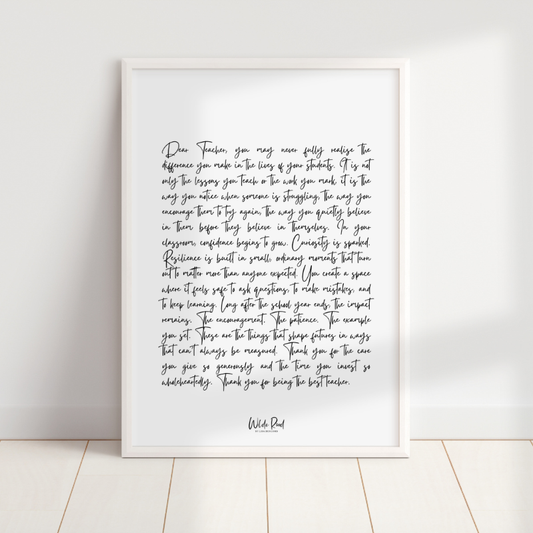 Dear Teacher, you may never fully realise the
difference you make in the lives of your students. It is not
only the lessons you teach or the work you mark, it is the
way you notice when someone is struggling, the way you
encourage them to try again, the way you quietly believe
in them before they believe in themselves. In your
classroom, confidence begins to grow. Curiosity is sparked.
Resilience is built in small, ordinary moments that turn
out to matter more than anyone expected. You create a space
where it feels safe to ask questions, to make mistakes, and
to keep learning. Long after the school year ends, the impact
remains. The encouragement. The patience. The example
you set. These are the things that shape futures in ways
that can't always be measured. Thank you for the care
you give so generously and the time you invest so
wholeheartedly. Thank you for being the best teacher.